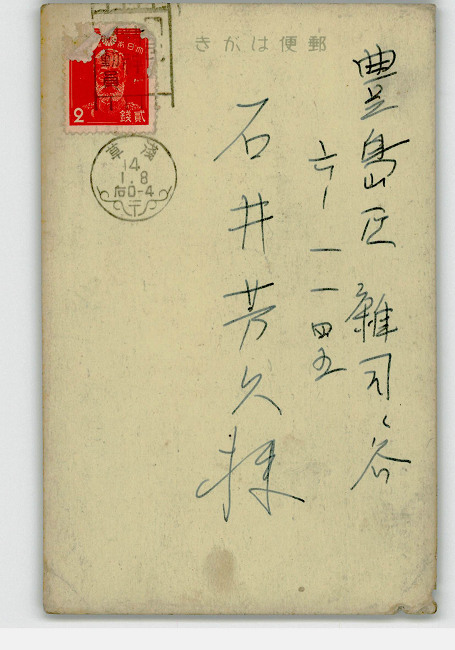 郵便はがき
豊島区雑司ヶ谷
六ノ一一四五
石井芳久様
大日本帝国郵便
2
銭貳
浅草
14
1.8
后0-4
〒